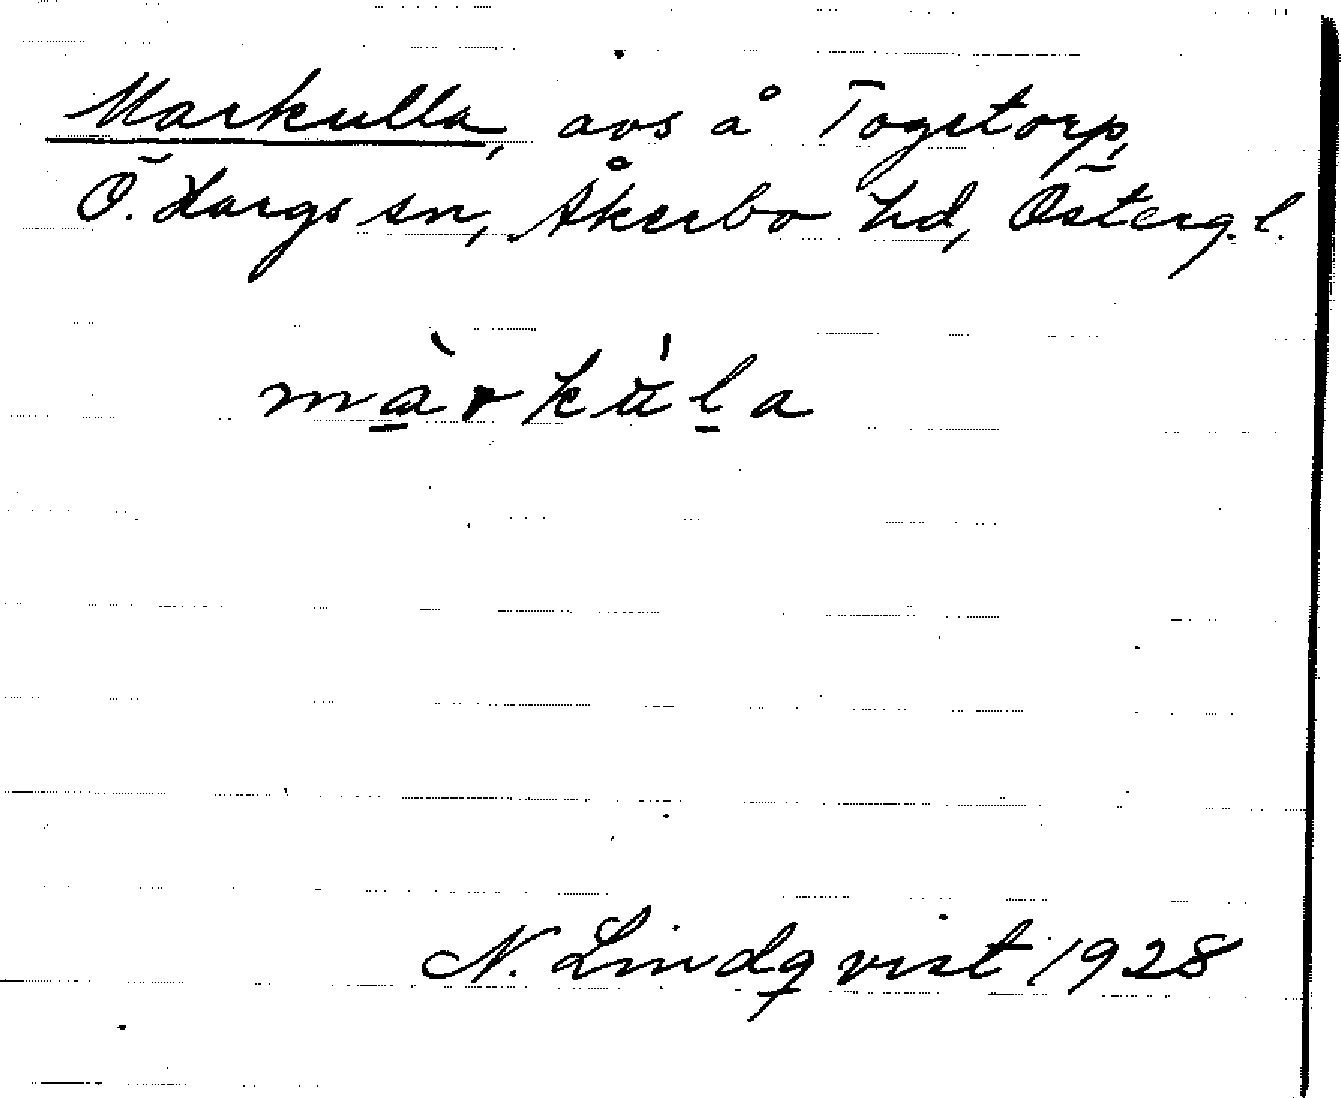 Markulla, avs å Togstorp,
Ö. Hargs sn, Åkerbo hd, Österg. l.
màrkúla
N. Lindqvist 1928